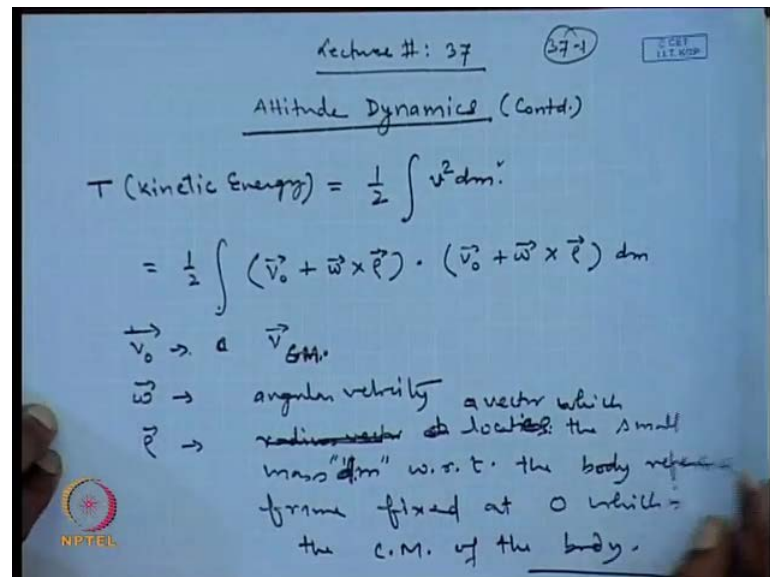 Lecture #: 37
37-1
I.I.T. KGP
Attitude Dynamics (Contd.)
T (Kinetic Energy) = 1/2 ∫ v² dm.
= 1/2 ∫ (v⃗₀ + ω⃗ × ρ⃗) · (v⃗₀ + ω⃗ × ρ⃗) dm
v⃗₀ → v⃗ C.M.
ω⃗ → angular velocity
ρ⃗ → radius vector a vector which locates the small
mass "dm" w.r.t. the body
frame fixed at O which
the C.M. of the body.
NPTEL